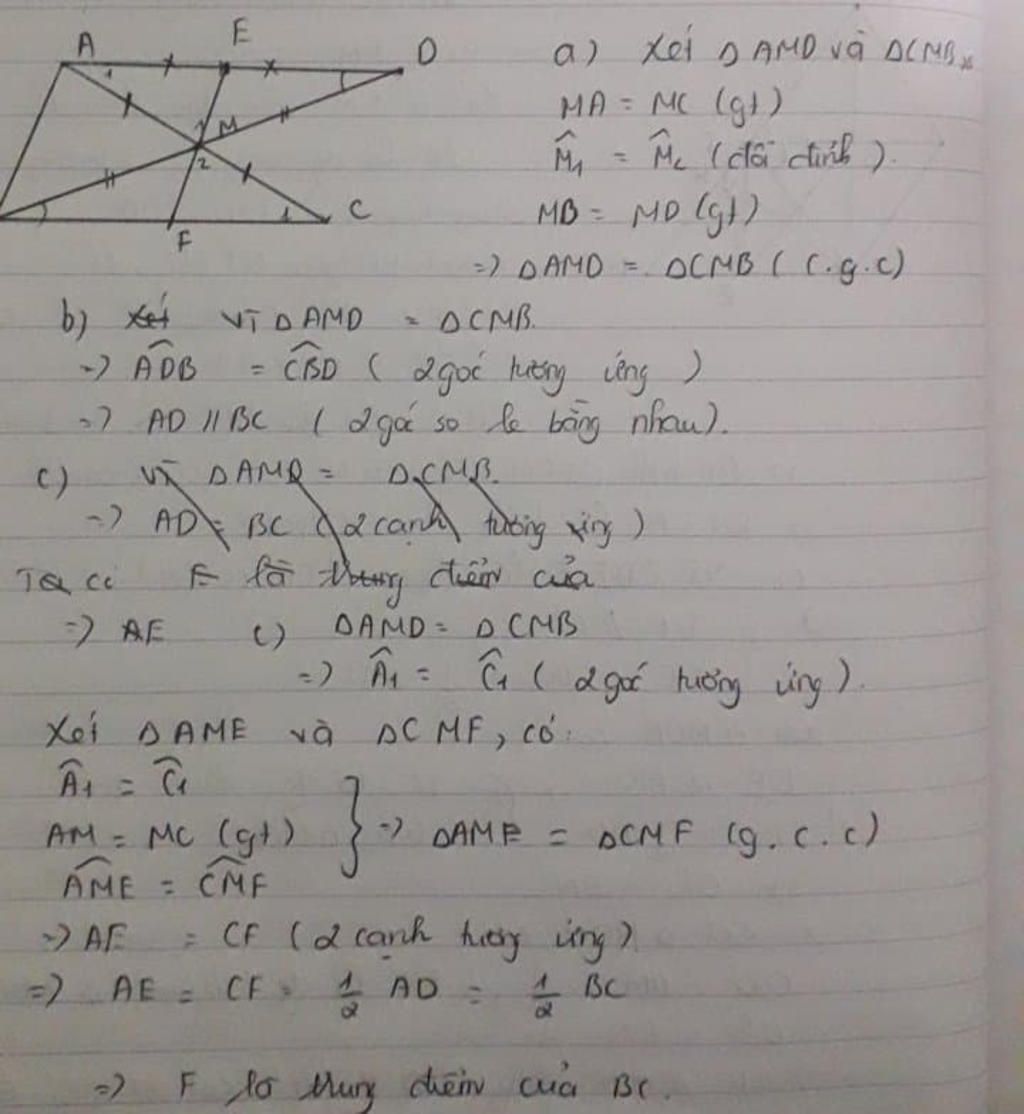 A E D
1
M
1
2
1 C
F
a) Xét Δ AMD và ΔCMB
MA = MC (gt)
M̂1 = M̂2 (đối đỉnh).
MB = MD (gt)
=> ΔAMD = ΔCMB (c.g.c)
b) Xét Vì ΔAMD = ΔCMB.
=> ADB = CBD (2 góc tương ứng)
=> AD // BC (2 góc so le bằng nhau).
c) Vì ΔAMD = ΔCMB.
=> AD = BC (2 cạnh tương ứng)
Ta có E là trung điểm của
=> AE c) ΔAMD = ΔCMB
=> Â1 = Ĉ1 (2 góc tương ứng).
Xét ΔAME và ΔCMF, có:
Â1 = Ĉ1
AM = MC (gt) } => ΔAME = ΔCMF (g.c.c)
AME = CMF
=> AE = CF (2 cạnh tương ứng)
=> AE = CF = 1/2 AD = 1/2 BC
=> F là trung điểm của BC.